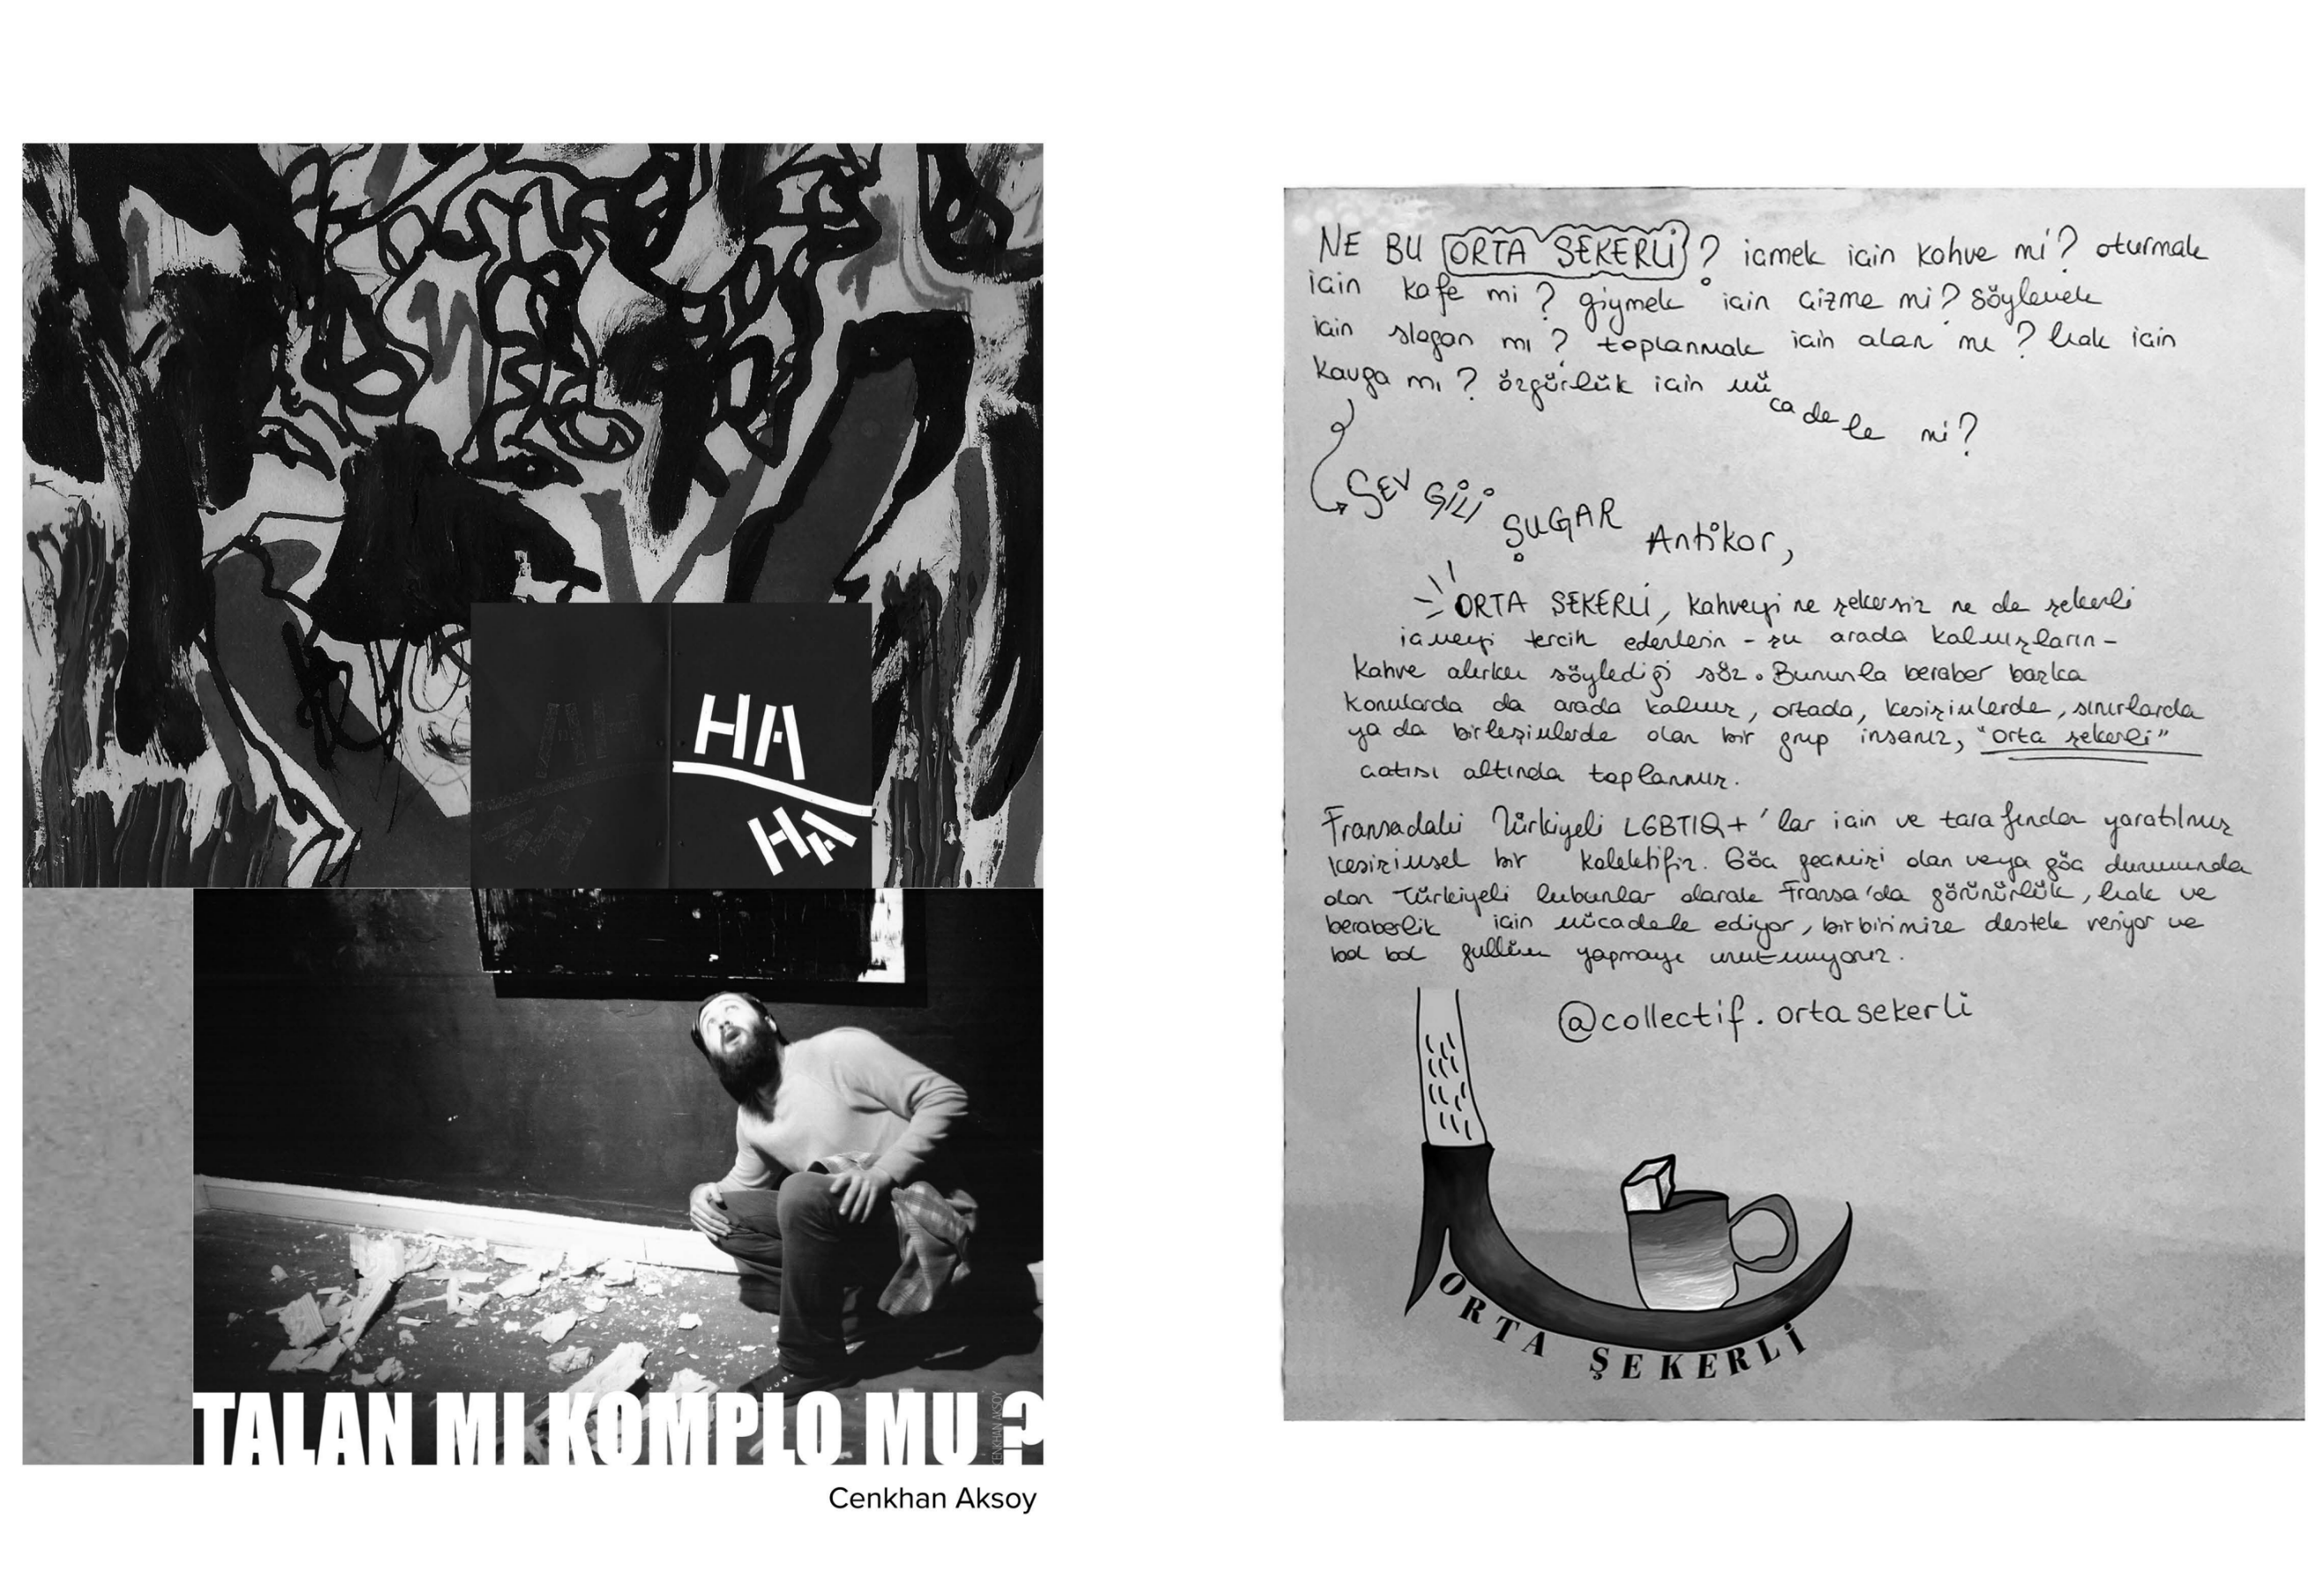 HA
HA
TALAN MI KOMPLO MU ?
CENKHAN AKSOY
Cenkhan Aksoy
NE BU ORTA ŞEKERLİ? içmek için kahve mi? oturmak
için kafe mi? giymek için çizme mi? söylemek
için slogan mı? toplanmak için alan mı? hak için
kavga mı? özgürlük için mücadele mi?
SEVGİLİ ŞUGAR Antikor,
ORTA ŞEKERLİ, kahveyi ne şekersiz ne de şekerli
içmeyi tercih edenlerin - şu arada kalmışların-
kahve alırken söylediği söz. Bununla beraber başka
konularda da arada kalmış, ortada, kesişimlerde, sınırlarda
ya da birleşimlerde olan bir grup insanız, "orta şekerli"
çatısı altında toplanmış.
Fransadaki Türkiyeli LGBTIQ+'lar için ve tarafından yaratılmış
kesişimsel bir kolektifiz. Göç geçmişi olan veya göç durumunda
olan Türkiyeli lubunlar olarak Fransa'da görünürlük, hak ve
beraberlik için mücadele ediyor, birbirimize destek veriyor ve
bol bol gullüm yapmayı unutmuyoruz.
@collectif.ortasekerli
ORTA ŞEKERLİ